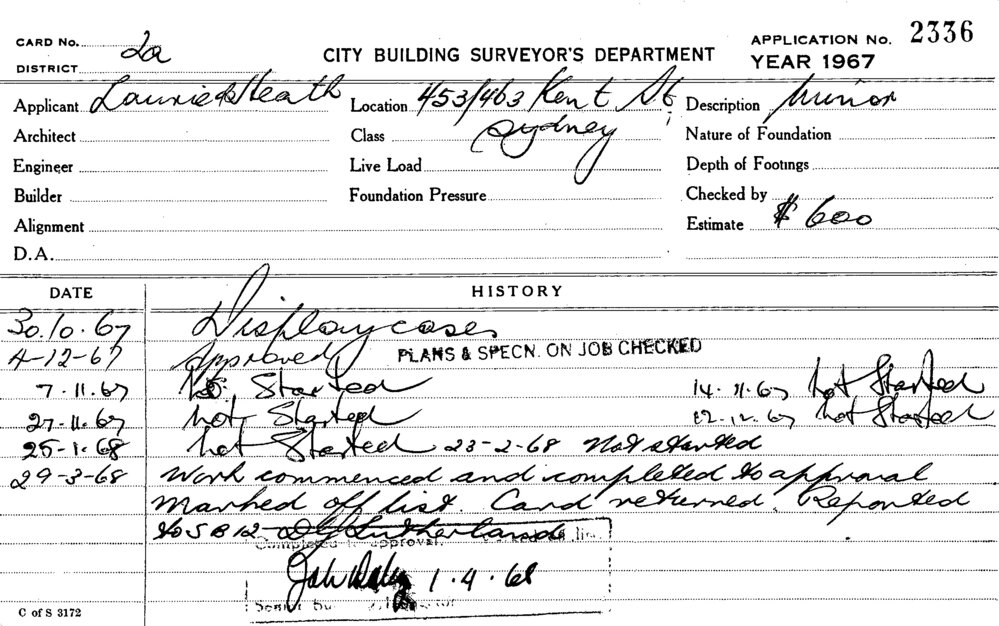 CARD No. 2a
DISTRICT
CITY BUILDING SURVEYOR'S DEPARTMENT
APPLICATION No. 2336
YEAR 1967
Applicant Laurie & Heath Location 453/463 Kent St, Description Minor
Architect Class Sydney Nature of Foundation
Engineer Live Load Depth of Footings
Builder Foundation Pressure Checked by
Alignment Estimate $ 600
D.A.
DATE HISTORY
30.10.67 Display cases
4-12-67 Approved PLANS & SPECN. ON JOB CHECKED
7.11.67 not Started 14.11.67 not Started
27.11.67 not Started 12.12.67 not Started
25.1.68 not Started 23-2-68 Not started
29-3-68 Work commenced and completed to approval
Marked off list. Card returned. Reported
to S B 12 D G Sutherland
Completed to approval. list.
John 1.4.68
Senior
C of S 3172